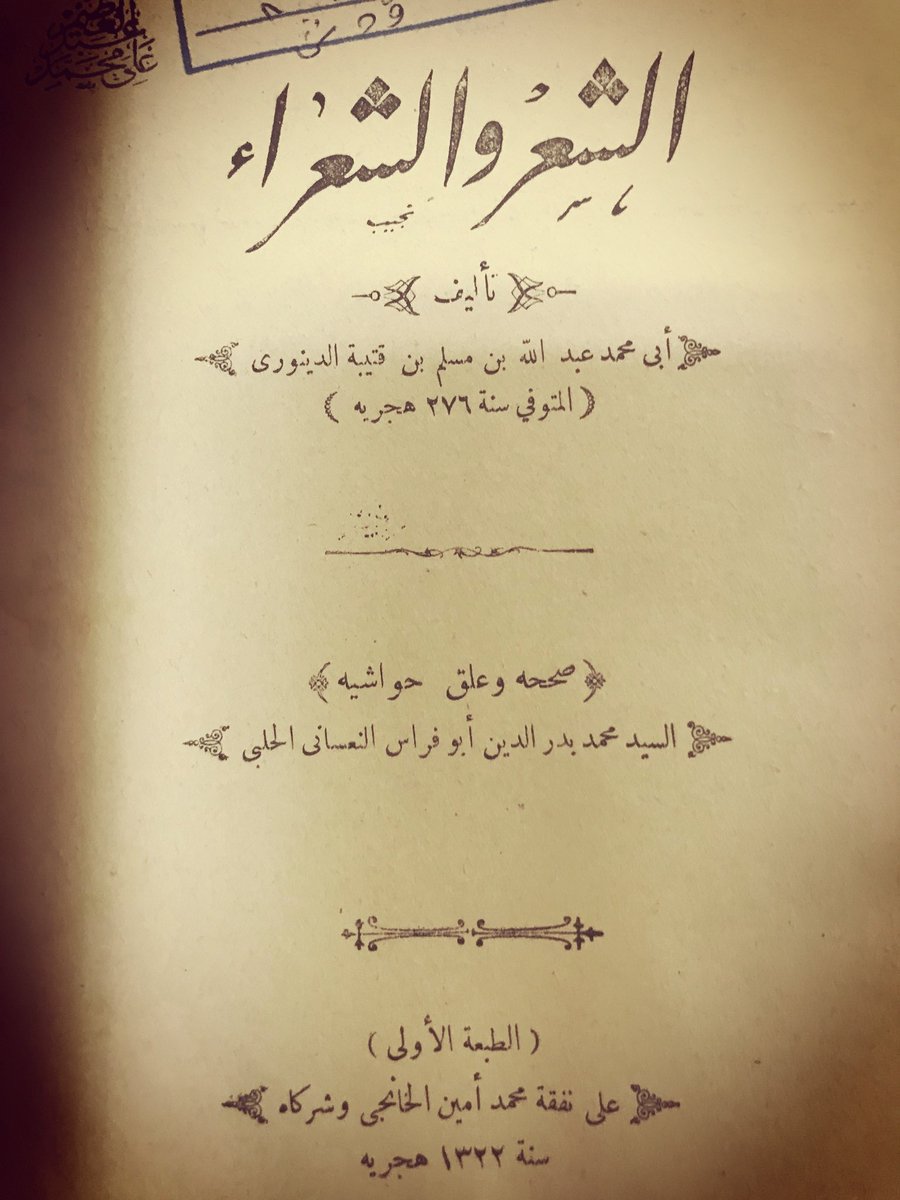 الشعر والشعراء
نجيب
تأليف
أبى محمد عبد الله بن مسلم بن قتيبة الدينورى
( المتوفي سنة ٢٧٦ هجريه )
صححه وعلق حواشيه
السيد محمد بدر الدين أبو فراس النعسانى الحلبى
( الطبعة الأولى )
على نفقة محمد أمين الخانجى وشركاه
سنة ١٣٢٢ هجريه